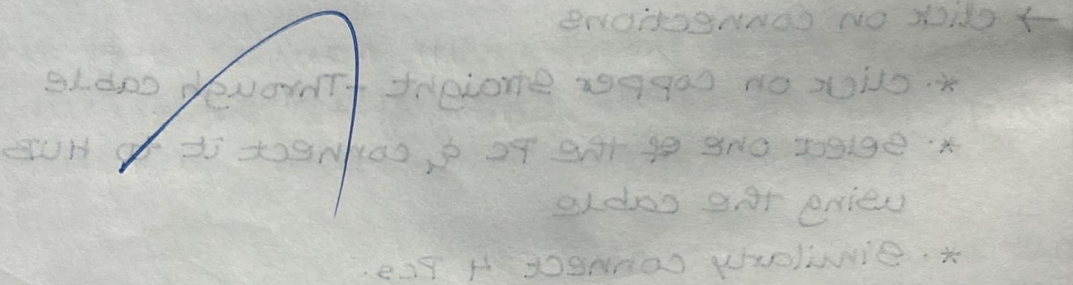 → click on connections
*. click on copper straight-Through cable
*. select one of the PC & connect it to HUB
using the cable
*. Similarly connect 4 PCs.